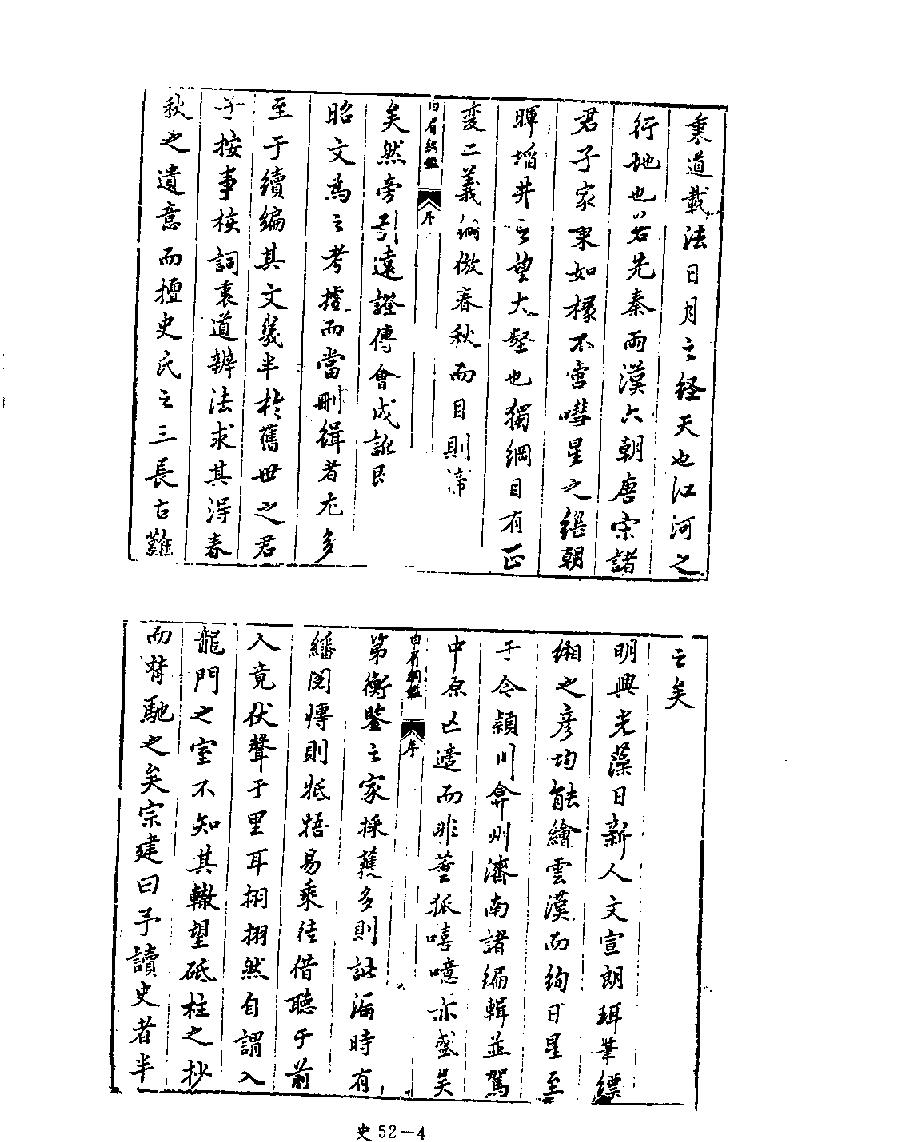 裏道載法日月之経天也江河之
行地也若先秦兩漢六朝唐宗諸
君子家秉如椽不啻嘒星之繼朝
暉壔井之望大壑也獨綱目有正
變二義倣春秋而目則
序
矣然旁引遠證傅會成訛
昭文為之考據而當刪緝者尤多
至于續編其文幾半於舊世之君
子按事核詞衷道辨法求其得春
秋之遺意而擅史氏之三長古難
之矣
明興光藻日新人文宣朗珥筆縹
緗之彥均能繪雲漢而絢日星至
于今潁川弇州濟南諸編輯並駕
中原亡遑而非薹狐嘻噫亦盛矣
序
第衡鑒之家採蒐多則訛漏時有
繙閱愽則牴牾易乘徒借聽于前
人竟伏聲于里耳栩栩然自謂入
龍門之室不知其轍望砥柱之抄
而騖馳之矣宗建曰予讀史者半
史52-4